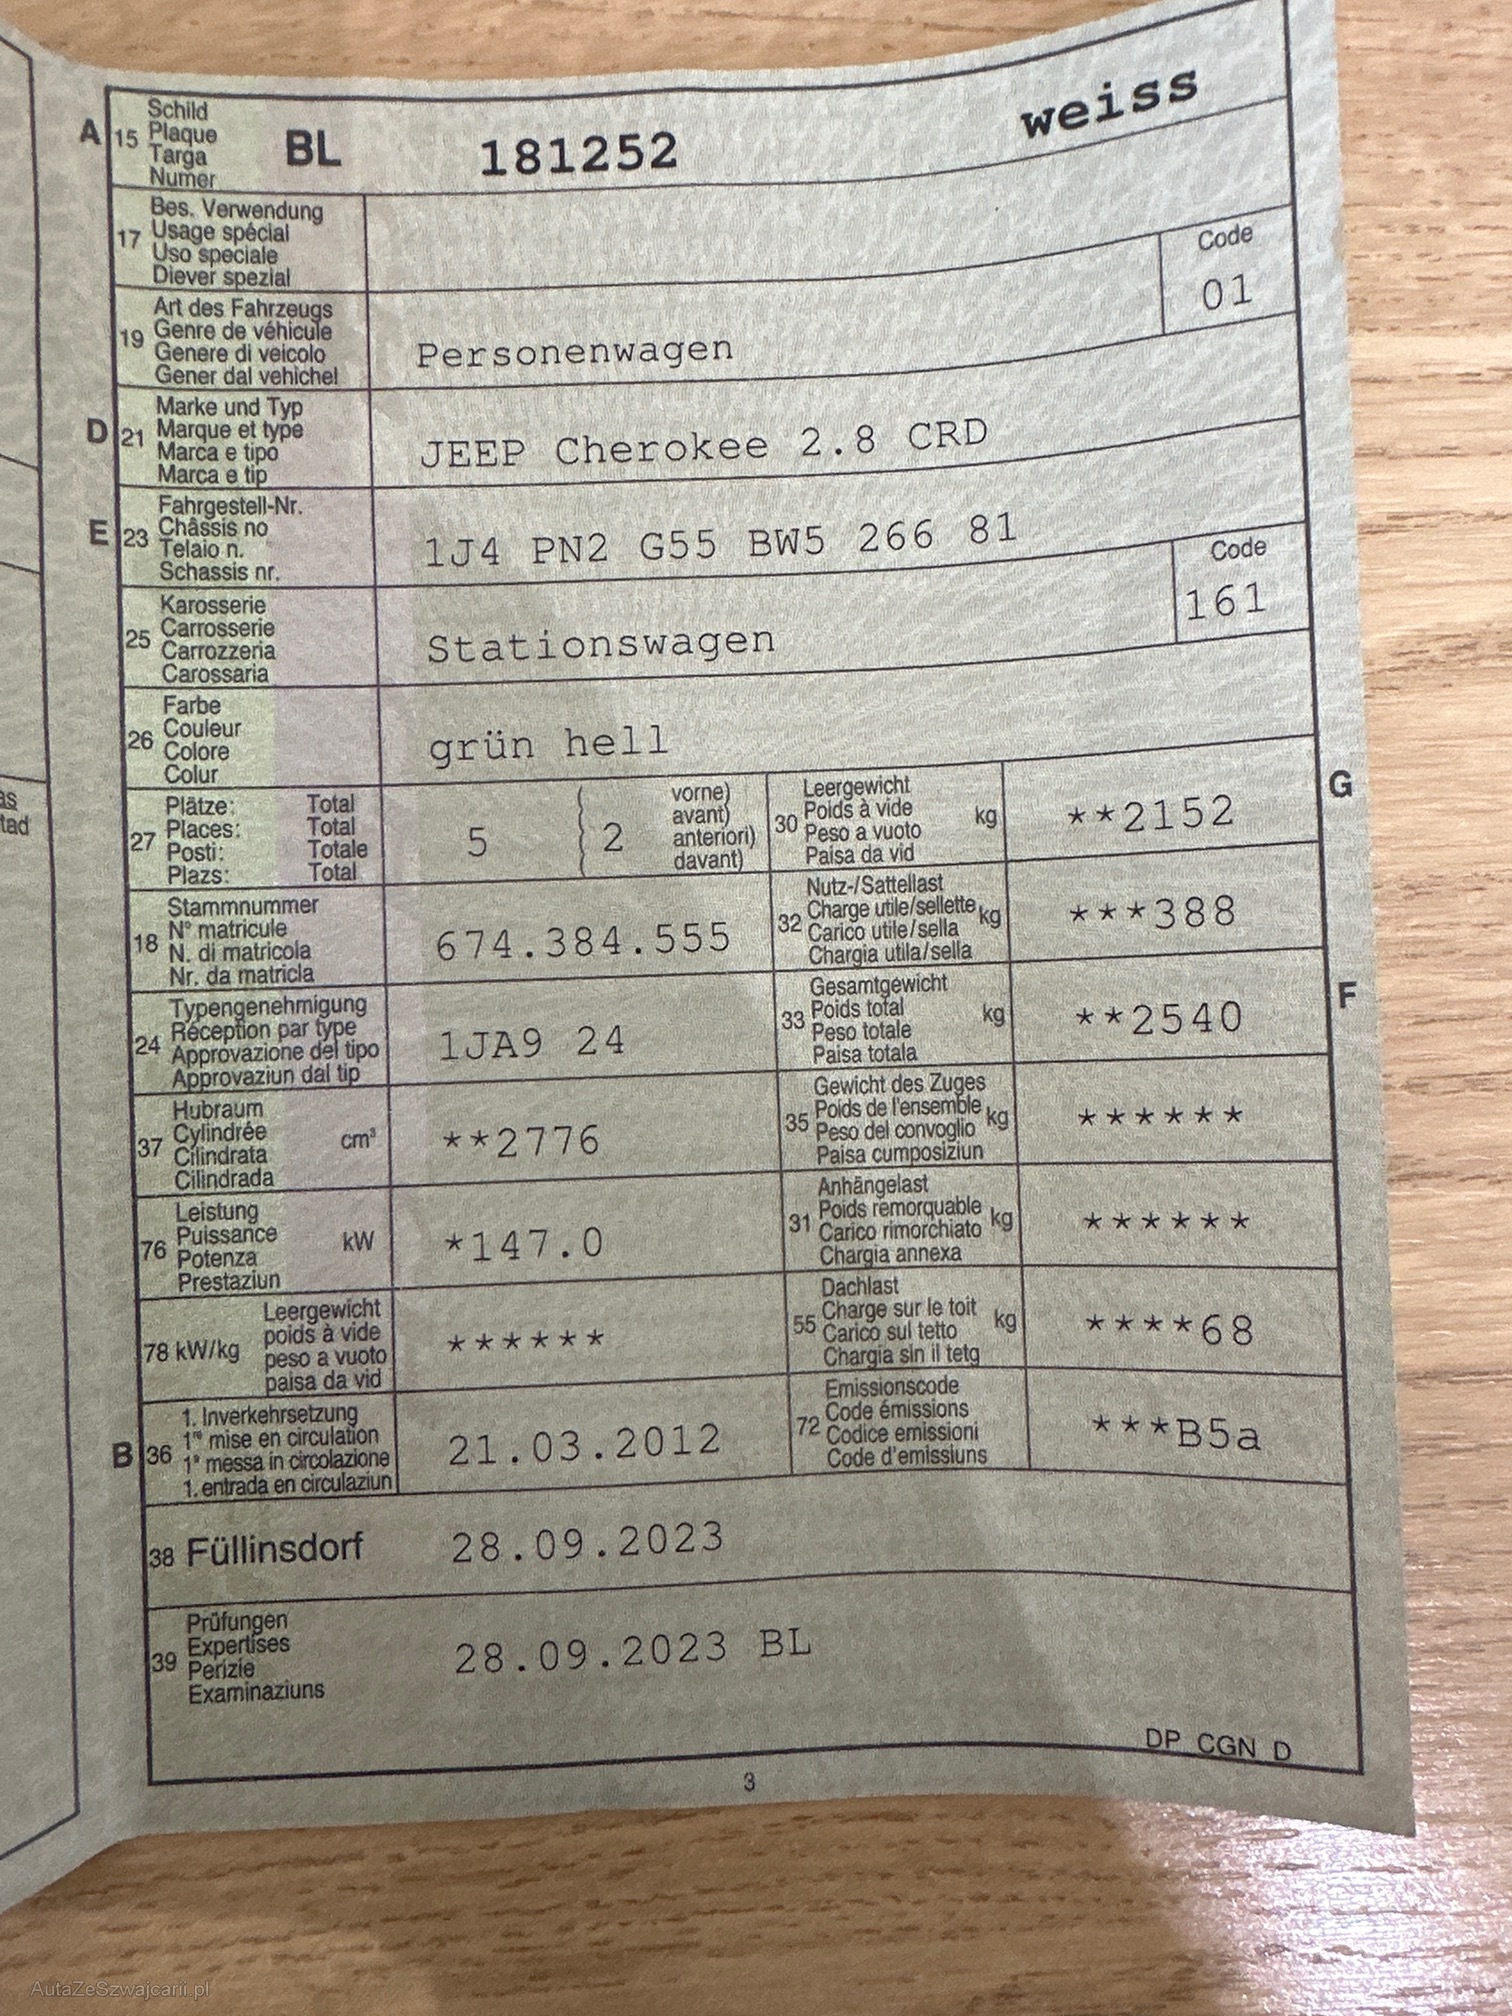 A 15 Schild
Plaque
Targa
Numer
BL 181252 weiss
17 Bes. Verwendung
Usage spécial
Uso speciale
Diever spezial
19 Art des Fahrzeugs
Genre de véhicule
Genere di veicolo
Gener dal vehichel
Personenwagen
Code
01
D 21 Marke und Typ
Marque et type
Marca e tipo
Marca e tip
JEEP Cherokee 2.8 CRD
E 23 Fahrgestell-Nr.
Châssis no
Telaio n.
Schassis nr.
1J4 PN2 G55 BW5 266 81
25 Karosserie
Carrosserie
Carrozzeria
Carossaria
Stationswagen
Code
161
26 Farbe
Couleur
Colore
Colur
grün hell
27 Plätze: Total
Places: Total
Posti: Totale
Plazs: Total
5 { 2 vorne)
avant)
anteriori)
davant)
30 Leergewicht
Poids à vide
Peso a vuoto
Paisa da vid
kg **2152
G
18 Stammnummer
N° matricule
N. di matricola
Nr. da matricla
674.384.555
32 Nutz-/Sattellast
Charge utile/sellette
Carico utile/sella
Chargia utila/sella
kg ***388
24 Typengenehmigung
Réception par type
Approvazione del tipo
Approvaziun dal tip
1JA9 24
33 Gesamtgewicht
Poids total
Peso totale
Paisa totala
kg **2540
F
37 Hubraum
Cylindrée
Cilindrata
Cilindrada
cm³ **2776
35 Gewicht des Zuges
Poids de l'ensemble
Peso del convoglio
Paisa cumposiziun
kg ******
76 Leistung
Puissance
Potenza
Prestaziun
kW *147.0
31 Anhängelast
Poids remorquable
Carico rimorchiato
Chargia annexa
kg ******
78 kW/kg Leergewicht
poids à vide
peso a vuoto
paisa da vid
******
55 Dachlast
Charge sur le toit
Carico sul tetto
Chargia sin il tetg
kg ****68
B 36 1. Inverkehrsetzung
1re mise en circulation
1a messa in circolazione
1. entrada en circulaziun
21.03.2012
72 Emissionscode
Code émissions
Codice emissioni
Code d'emissiuns
***B5a
38 Füllinsdorf 28.09.2023
39 Prüfungen
Expertises
Perizie
Examinaziuns
28.09.2023 BL
DP CGN D
3
AutaZeSzwajcarii.pl